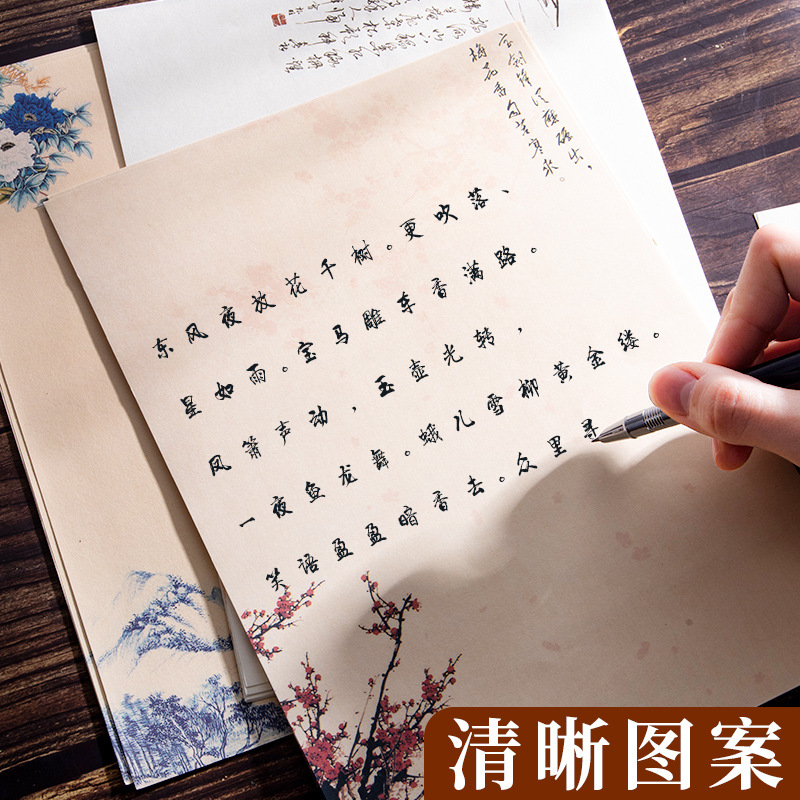 宝剑锋从磨砺出，
梅花香自苦寒来。
东风夜放花千树。更吹落、
星如雨。宝马雕车香满路。
风箫声动，玉壶光转，
一夜鱼龙舞。蛾儿雪柳黄金缕。
笑语盈盈暗香去。众里寻
清晰图案